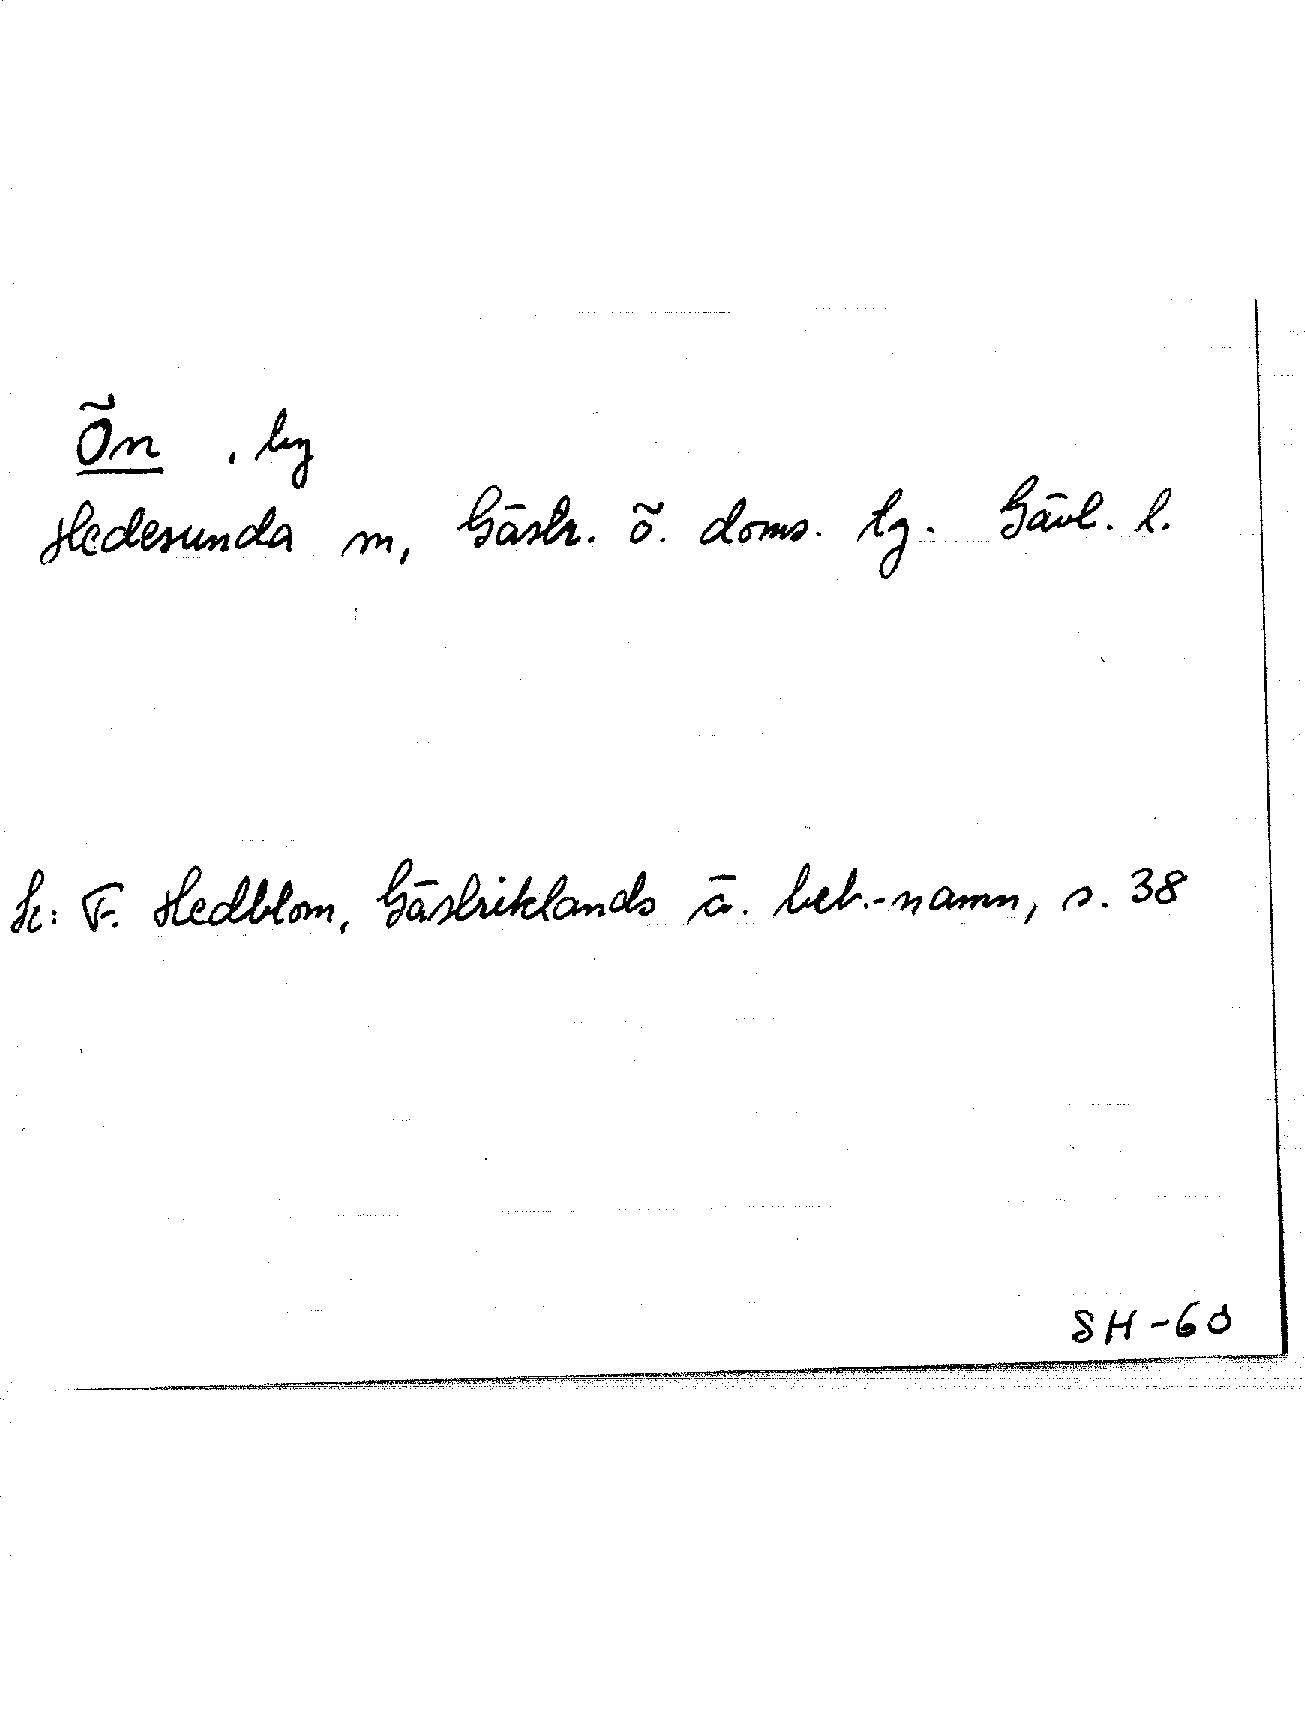 Ön, by
Hedesunda sn, Gästr. ö. doms. tg. Gävl. l.
Se: F. Hedblom, Gästriklands ä. beb.-namn, s. 38
SH-60